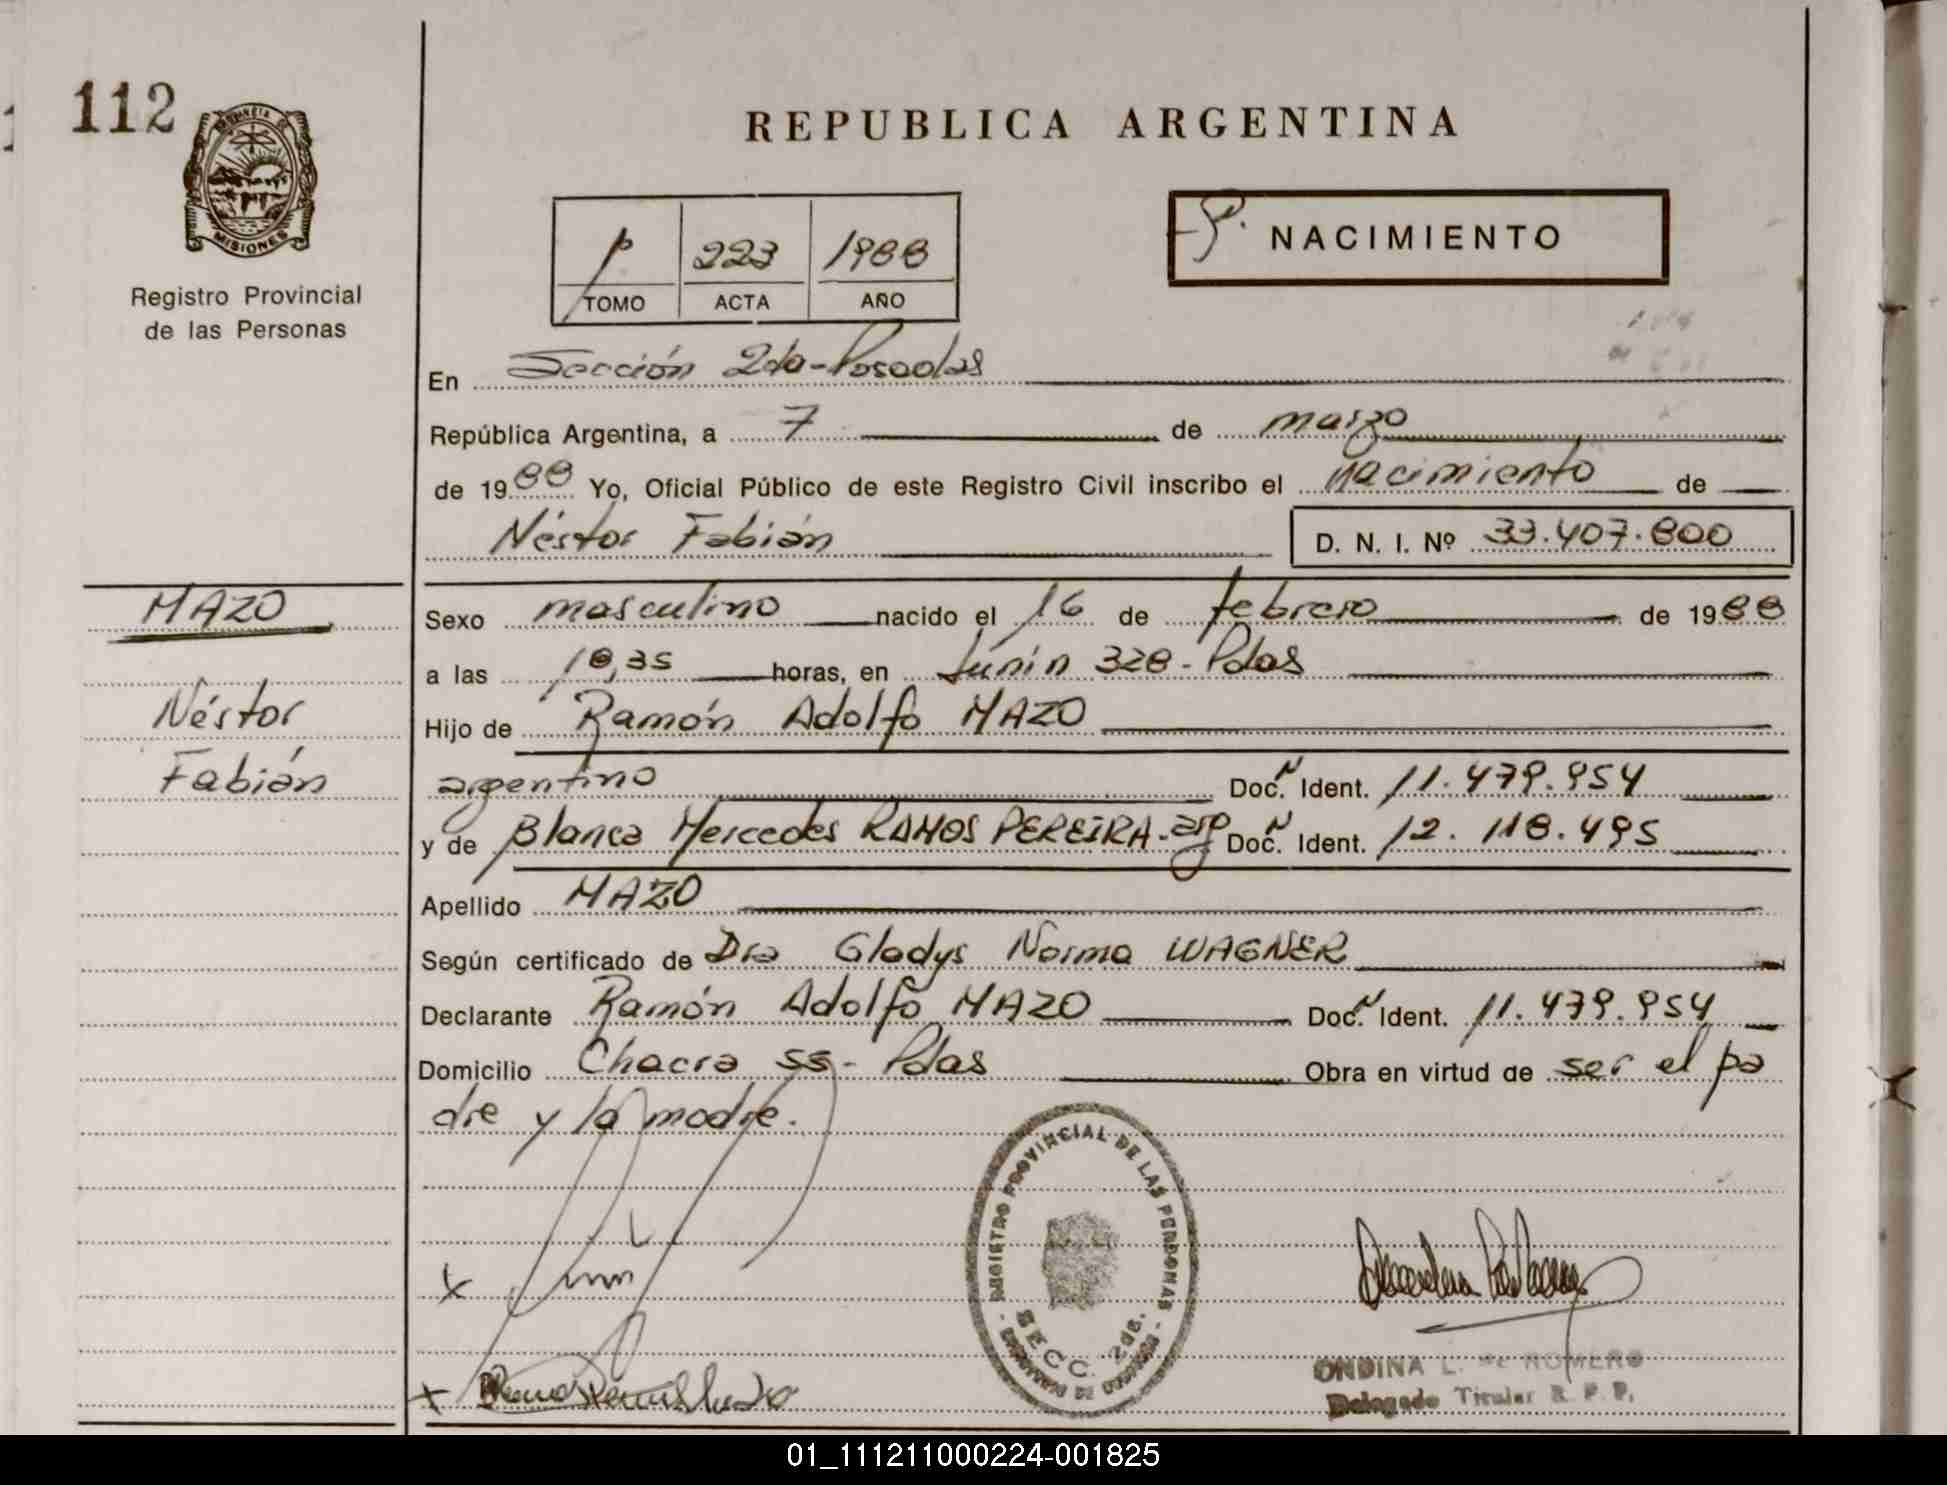 112
MISIONES
Registro Provincial
de las Personas
REPUBLICA ARGENTINA
223 1988
TOMO ACTA AÑO
NACIMIENTO
En Sección 2da-Posadas
República Argentina, a 7 de marzo
de 1988 Yo, Oficial Público de este Registro Civil inscribo el nacimiento de
Néstor Fabián D. N. I. Nº 33.407.800
MAZO
Néstor
Fabián
Sexo masculino nacido el 16 de febrero de 1988
a las 18,35 horas, en Junín 328-Pdas
Hijo de Ramón Adolfo MAZO
argentino Doc. N Ident. 11.479.954
y de Blanca Mercedes RAMOS PEREIRA-arg Doc. N Ident. 12.118.495
Apellido MAZO
Según certificado de Dra Gladys Norma WAGNER
Declarante Ramón Adolfo MAZO Doc. N Ident. 11.479.954
Domicilio Chacra 55- Pdas Obra en virtud de ser el pa
dre y la madre.
REGISTRO PROVINCIAL DE LAS PERSONAS
SECC. 2da.
ONDINA L. de ROMERO
Delegado Titular R. P. P.
01_111211000224-001825